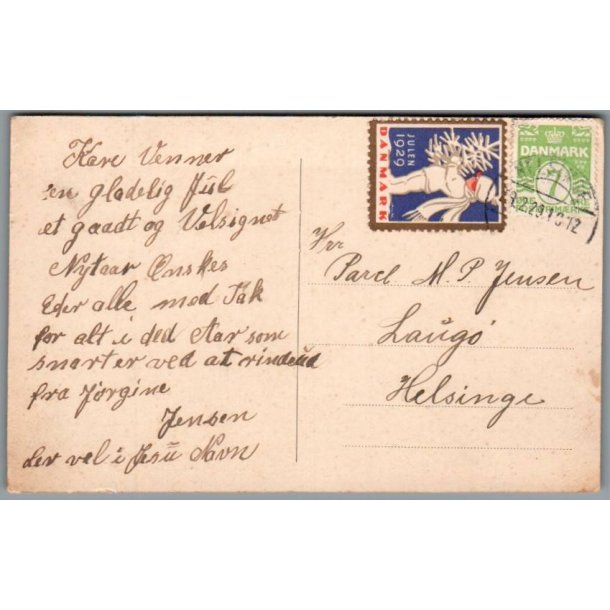 Kære Venner
en glædelig Jul
et gaadt og Velsignet
Nytaar Ønskes
Eder alle med Tak
for alt i ded Aar som
snart er ved at rinde ud
fra Jørgine
Jensen
Lev vel i Jesu Navn
JULEN
1929
DANMARK
DANMARK
7
Hr
Parcl M. P. Jensen
Laugø
Helsinge